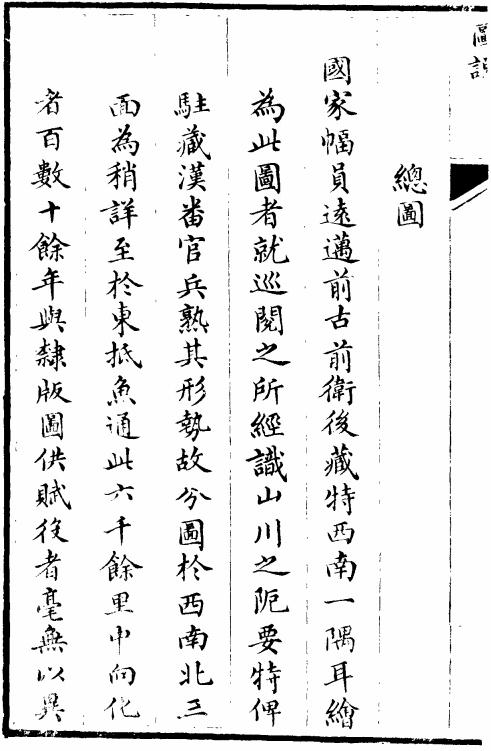 圖說
總圖
國家幅員遠邁前古前衛後藏特西南一隅耳繪
為此圖者就巡閱之所經識山川之阨要特俾
駐藏漢番官兵熟其形勢故分圖於西南北三
面為稍詳至於東抵魚通此六千餘里中向化
者百數十餘年與隸版圖供賦役者毫無以異